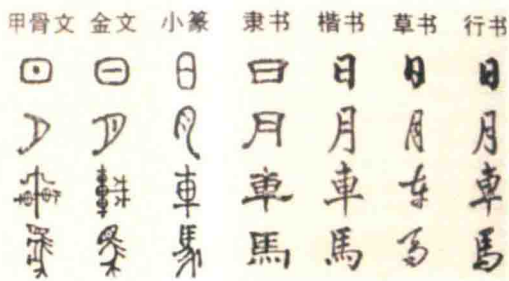 甲骨文 金文 小篆 隶书 楷书 草书 行书
日 日 日 日 日 日 日
月 月 月 月 月 月 月
車 車 車 車 車 车 車
馬 馬 馬 馬 馬 马 馬